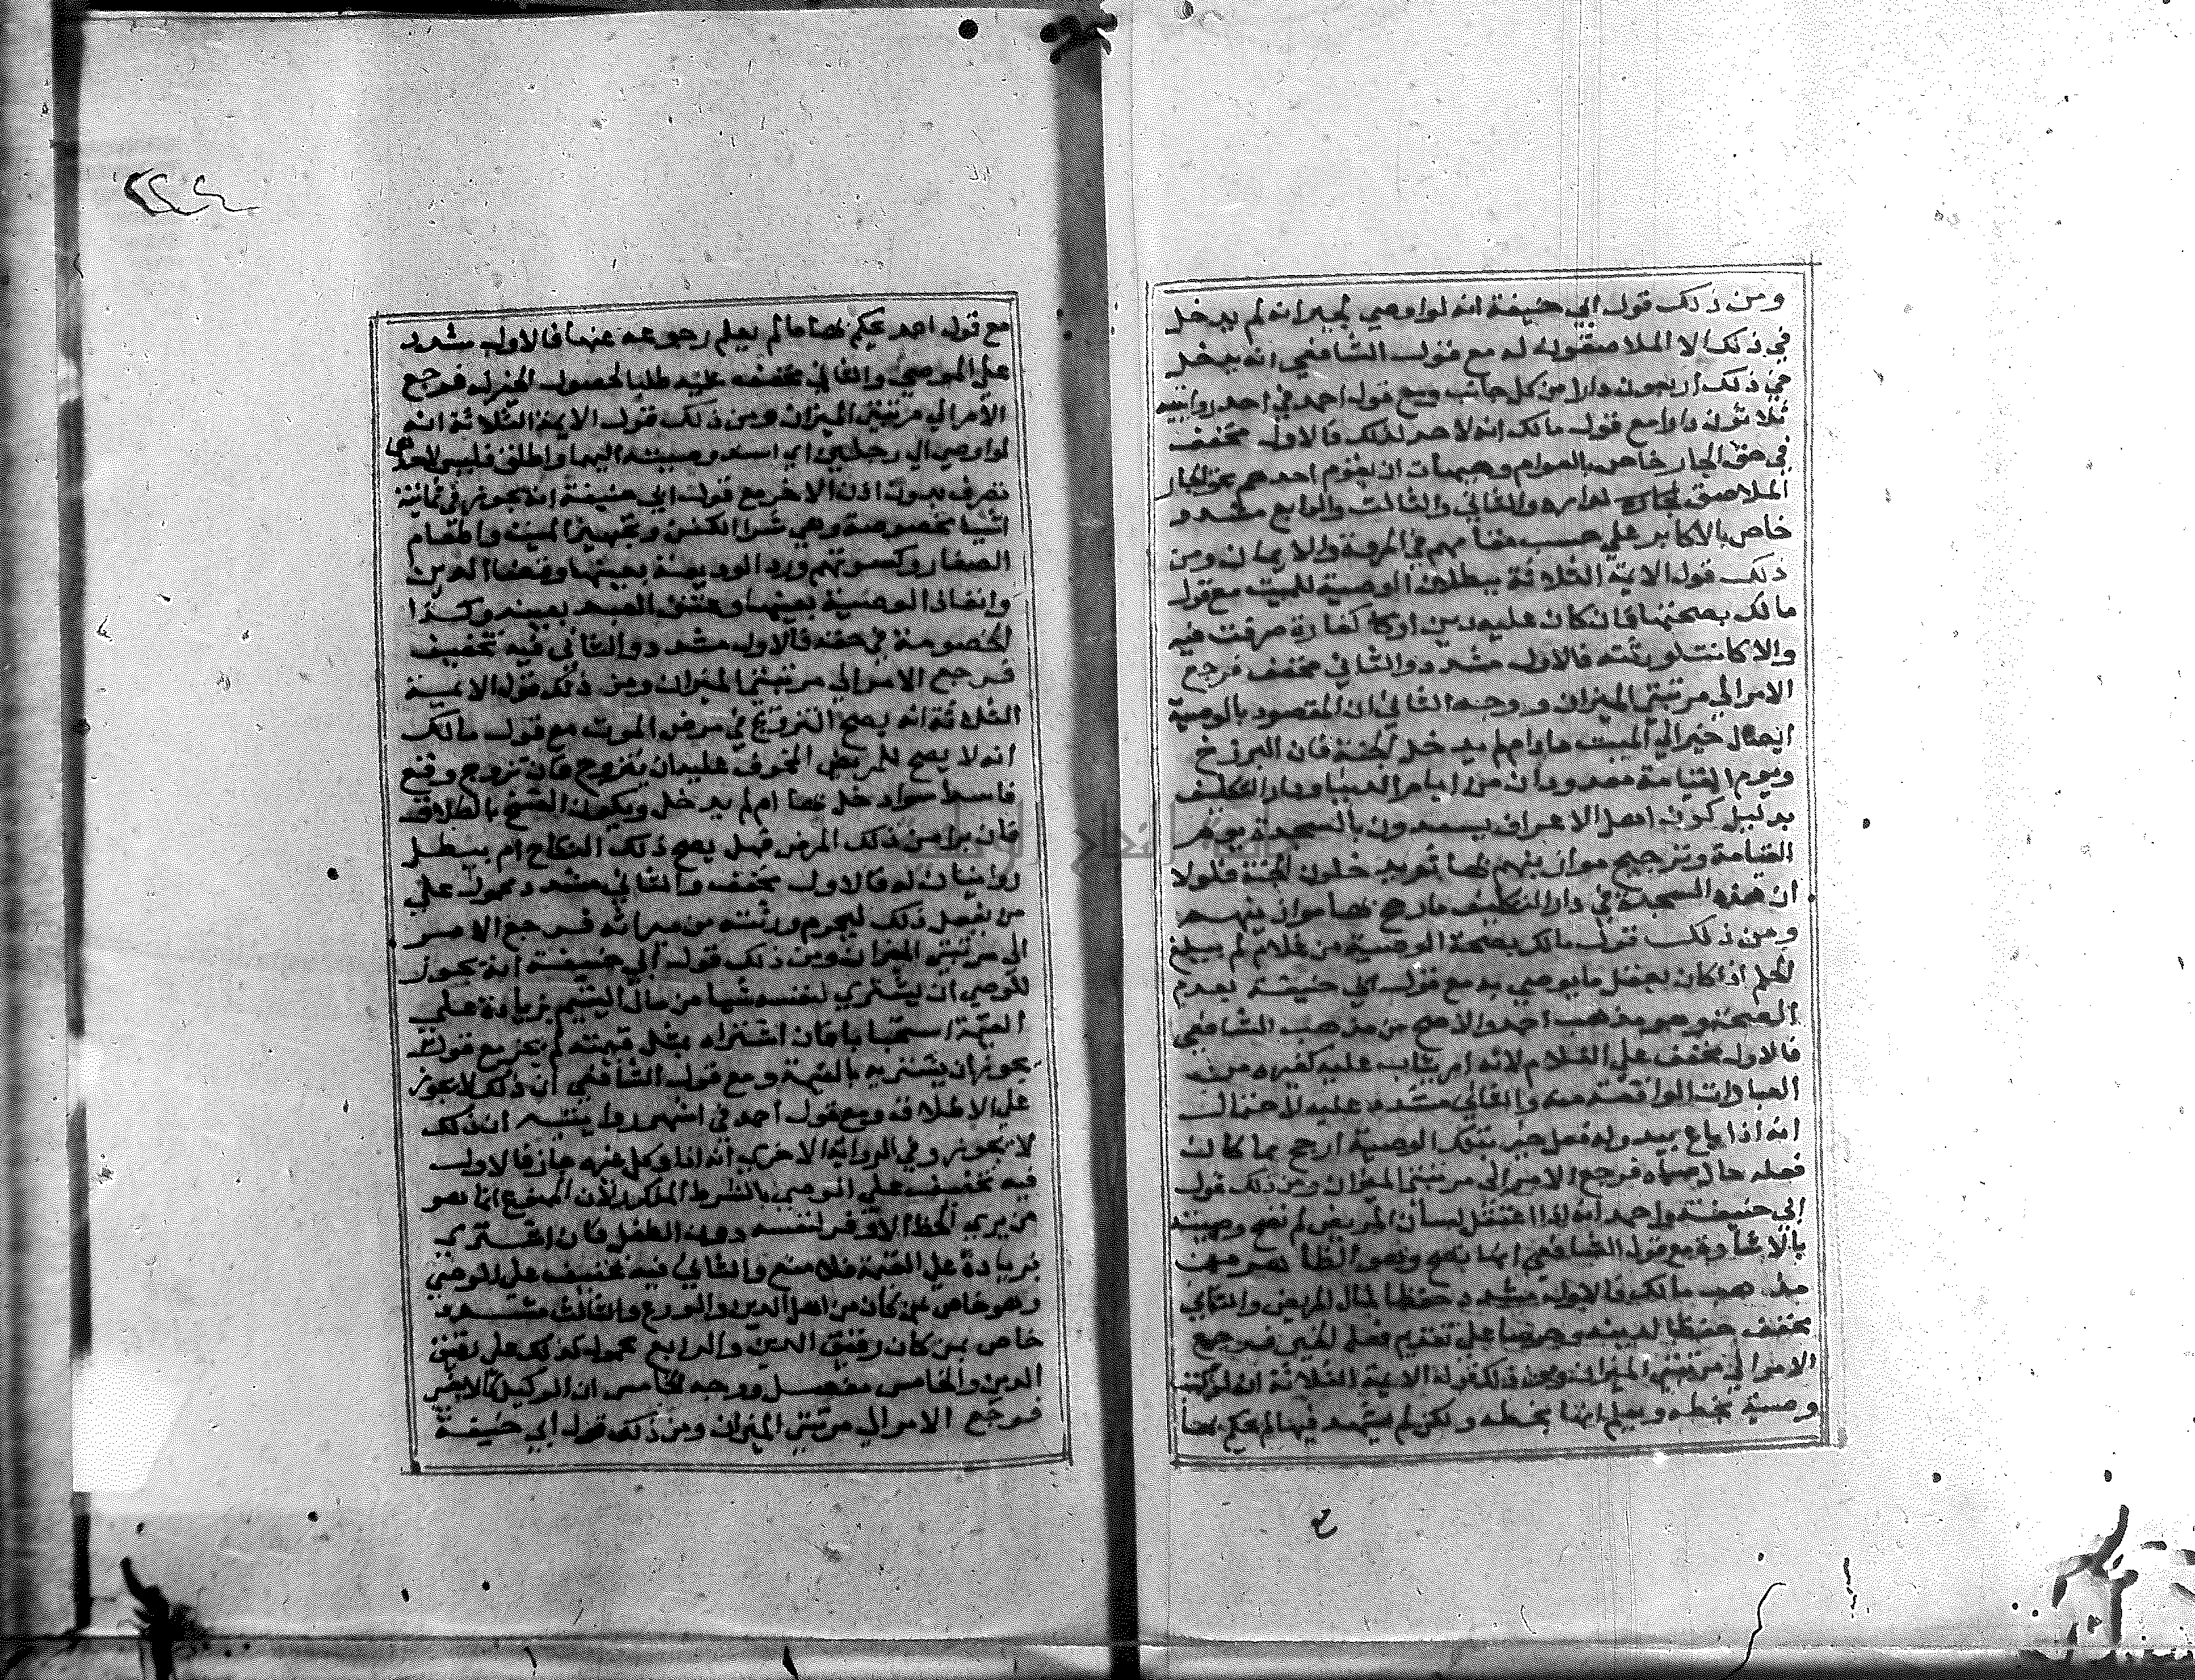 ومن ذلك قول ابي حنيفة انه لو اوصي لجيرانه لم يدخل
في ذلك الا الملاصقون له مع قول الشافعي انه يدخل
في ذلك اربعون دارا من كل جانب ومع قول احمد في احد روايتيه
ثلاثون دارا مع قول مالك انه لا حد لذلك فالاول مخفف
في حق الجار خاص بالعوام وهيهات ان يقوم احدهم بحق الجار
الملاصق لداره والثاني والثالث والرابع مشدد
خاص بالاكابر علي حسب مقامهم في المروة والايمان ومن
ذلك قول الايمة الثلاثة ببطلان الوصية للميت مع قول
مالك بصحتها فان كان عليه دين او كفارة صرفت فيه
والا كانت لورثته فالاول مشدد والثاني مخفف فرجع
الامر الي مرتبتي الميزان ووجه الثاني ان المقصود بالوصية
ايصال خير الي الميت مادام لم يدخل الجنة فان البرزخ
ويوم القيامة معدودان من ايام الدنيا ودار التكليف
بدليل كون اهل الاعراف يسعدون بالسجدة يوم
القيامة وترجيح موازينهم بها ثم يدخلون الجنة فلولا
ان هذه السجدة في دار التكليف ما رجح بها موازينهم
ومن ذلك قول مالك بصحة الوصية من غلام لم يبلغ
الحلم اذا كان يعقل ما يوصي به مع قول ابي حنيفة بعدم
الصحة وهو مذهب احمد والاصح من مذهب الشافعي
فالاول مخفف علي الغلام لانه امر يثاب عليه كغيره من
العبادات الواقعة منه والثاني مشدد عليه لاحتمال
انه اذا باع بيد وله فعل خير بتلك الوصية ارجح مما كان
فعله حال صباه فرجع الامر الي مرتبتي الميزان ومن ذلك قول
ابي حنيفة واحمد انه اذا اعتقل لسان المريض لم تصح وصيته
بالاشارة مع قول الشافعي انها تصح وهو الظاهر من
مذهب مالك فالاول مشدد حفظا لمال المريض والثاني
مخفف حفظا لدينه وحرصا علي تقديم فعل الخير فرجع
الامر الي مرتبتي الميزان ومن ذلك قول الايمة الثلاثة انه لو كتب
وصية بخطه ويعلم انها بخطه ولكن لم يشهد فيها لم يحكم بها
مع قول احمد يحكم بها ما لم يعلم رجوعه عنها فالاول مشدد
علي الموصي والثاني مخفف عليه طلبا لحصول الخير له فرجع
الامر الي مرتبتي الميزان ومن ذلك قول الايمة الثلاثة انه
لو اوصي الي رجلين اي اسند وصيته اليهما واطلق فليس لاحدهما
تصرف بدون اذن الاخر مع قول ابي حنيفة انه يجوز في ثمانية
اشيا مخصوصة وهي شرا الكفن وتجهيز الميت واطعام
الصغار وكسوتهم ورد الوديعة بعينها وقضا الدين
وانفاذ الوصية بعينها وعتق العبد بعينه وكذا
الخصومة في حقه فالاول مشدد والثاني فيه تخفيف
فرجع الامر الي مرتبتي الميزان ومن ذلك قول الايمة
الثلاثة انه يصح التزويج في مرض الموت مع قول مالك
انه لا يصح للمريض المخوف عليه ان يتزوج فان تزوج وقع
فاسدا سوا دخل بها ام لم يدخل ويكون الفسخ بالطلاق
فان برا من ذلك المرض فهل يصح ذلك النكاح ام يبطل
روايتان له فالاول مخفف والثاني مشدد محمول علي
من يفعل ذلك ليحرم ورثته من ميراثه فرجع الامر
الي مرتبتي الميزان ومن ذلك قول ابي حنيفة انه يجوز
للوصي ان يشتري لنفسه شيا من مال اليتيم بزيادة علي
القيمة استحبابا فان اشتراه بمثل قيمته لم يجز مع قول مالك
يجوز ان يشتريه بالقيمة ومع قول الشافعي ان ذلك لا يجوز
علي الاطلاق ومع قول احمد في اشهر روايتيه ان ذلك
لا يجوز وفي الرواية الاخري انه اذا وكل غيره جاز فالاول
فيه تخفيف علي الوصي بالشرط المذكور لان المنع انما هو
من يري الحظ الاوفر لنفسه دون الطفل فان اشتري
بزيادة علي القيمة فلا منع والثاني فيه تخفيف علي الوصي
وهو خاص بمن كان من اهل الدين والورع والثالث مشدد
خاص بمن كان رقيق الدين والرابع محمول كذلك علي رقيق
الدين والخامس مفصل ووجه الخامس ان الوكيل كالاجنبي
فرجع الامر الي مرتبتي الميزان ومن ذلك قول ابي حنيفة